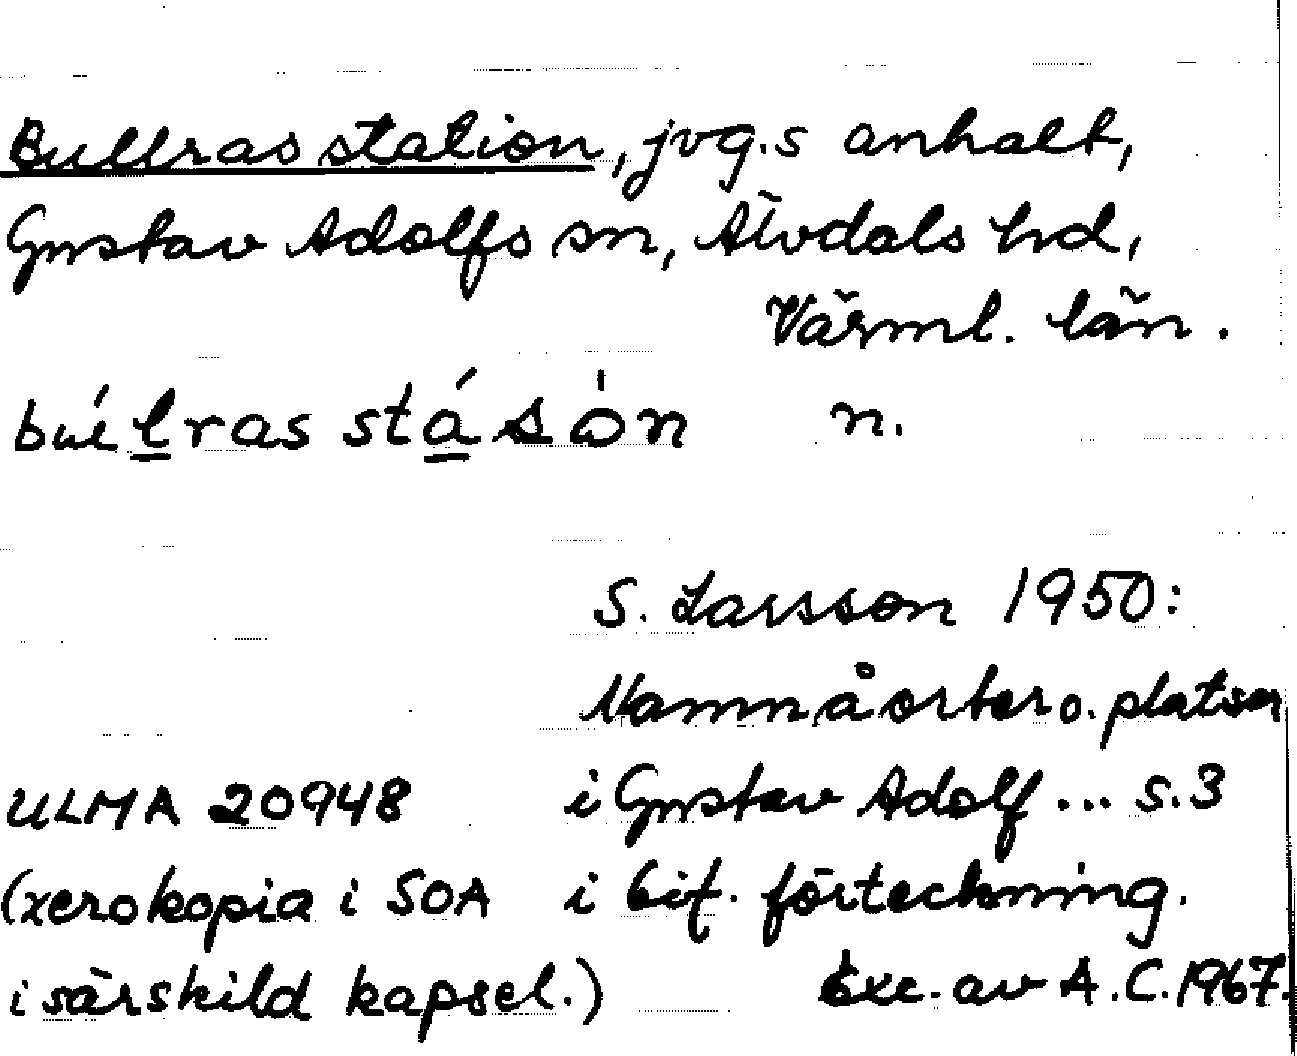 Bullras station, jvg.s anhalt,
Gustav Adolfs sn, Älvdals hd,
Värml. län.
búlras stásòn n.
S. Larsson 1950:
Namn å orter o. platser
ULMA 20948 i Gustav Adolf ... s. 3
(xerokopia i SOA i bif. förteckning.
i särskild kapsel.) Exc. av A.C. 1967.